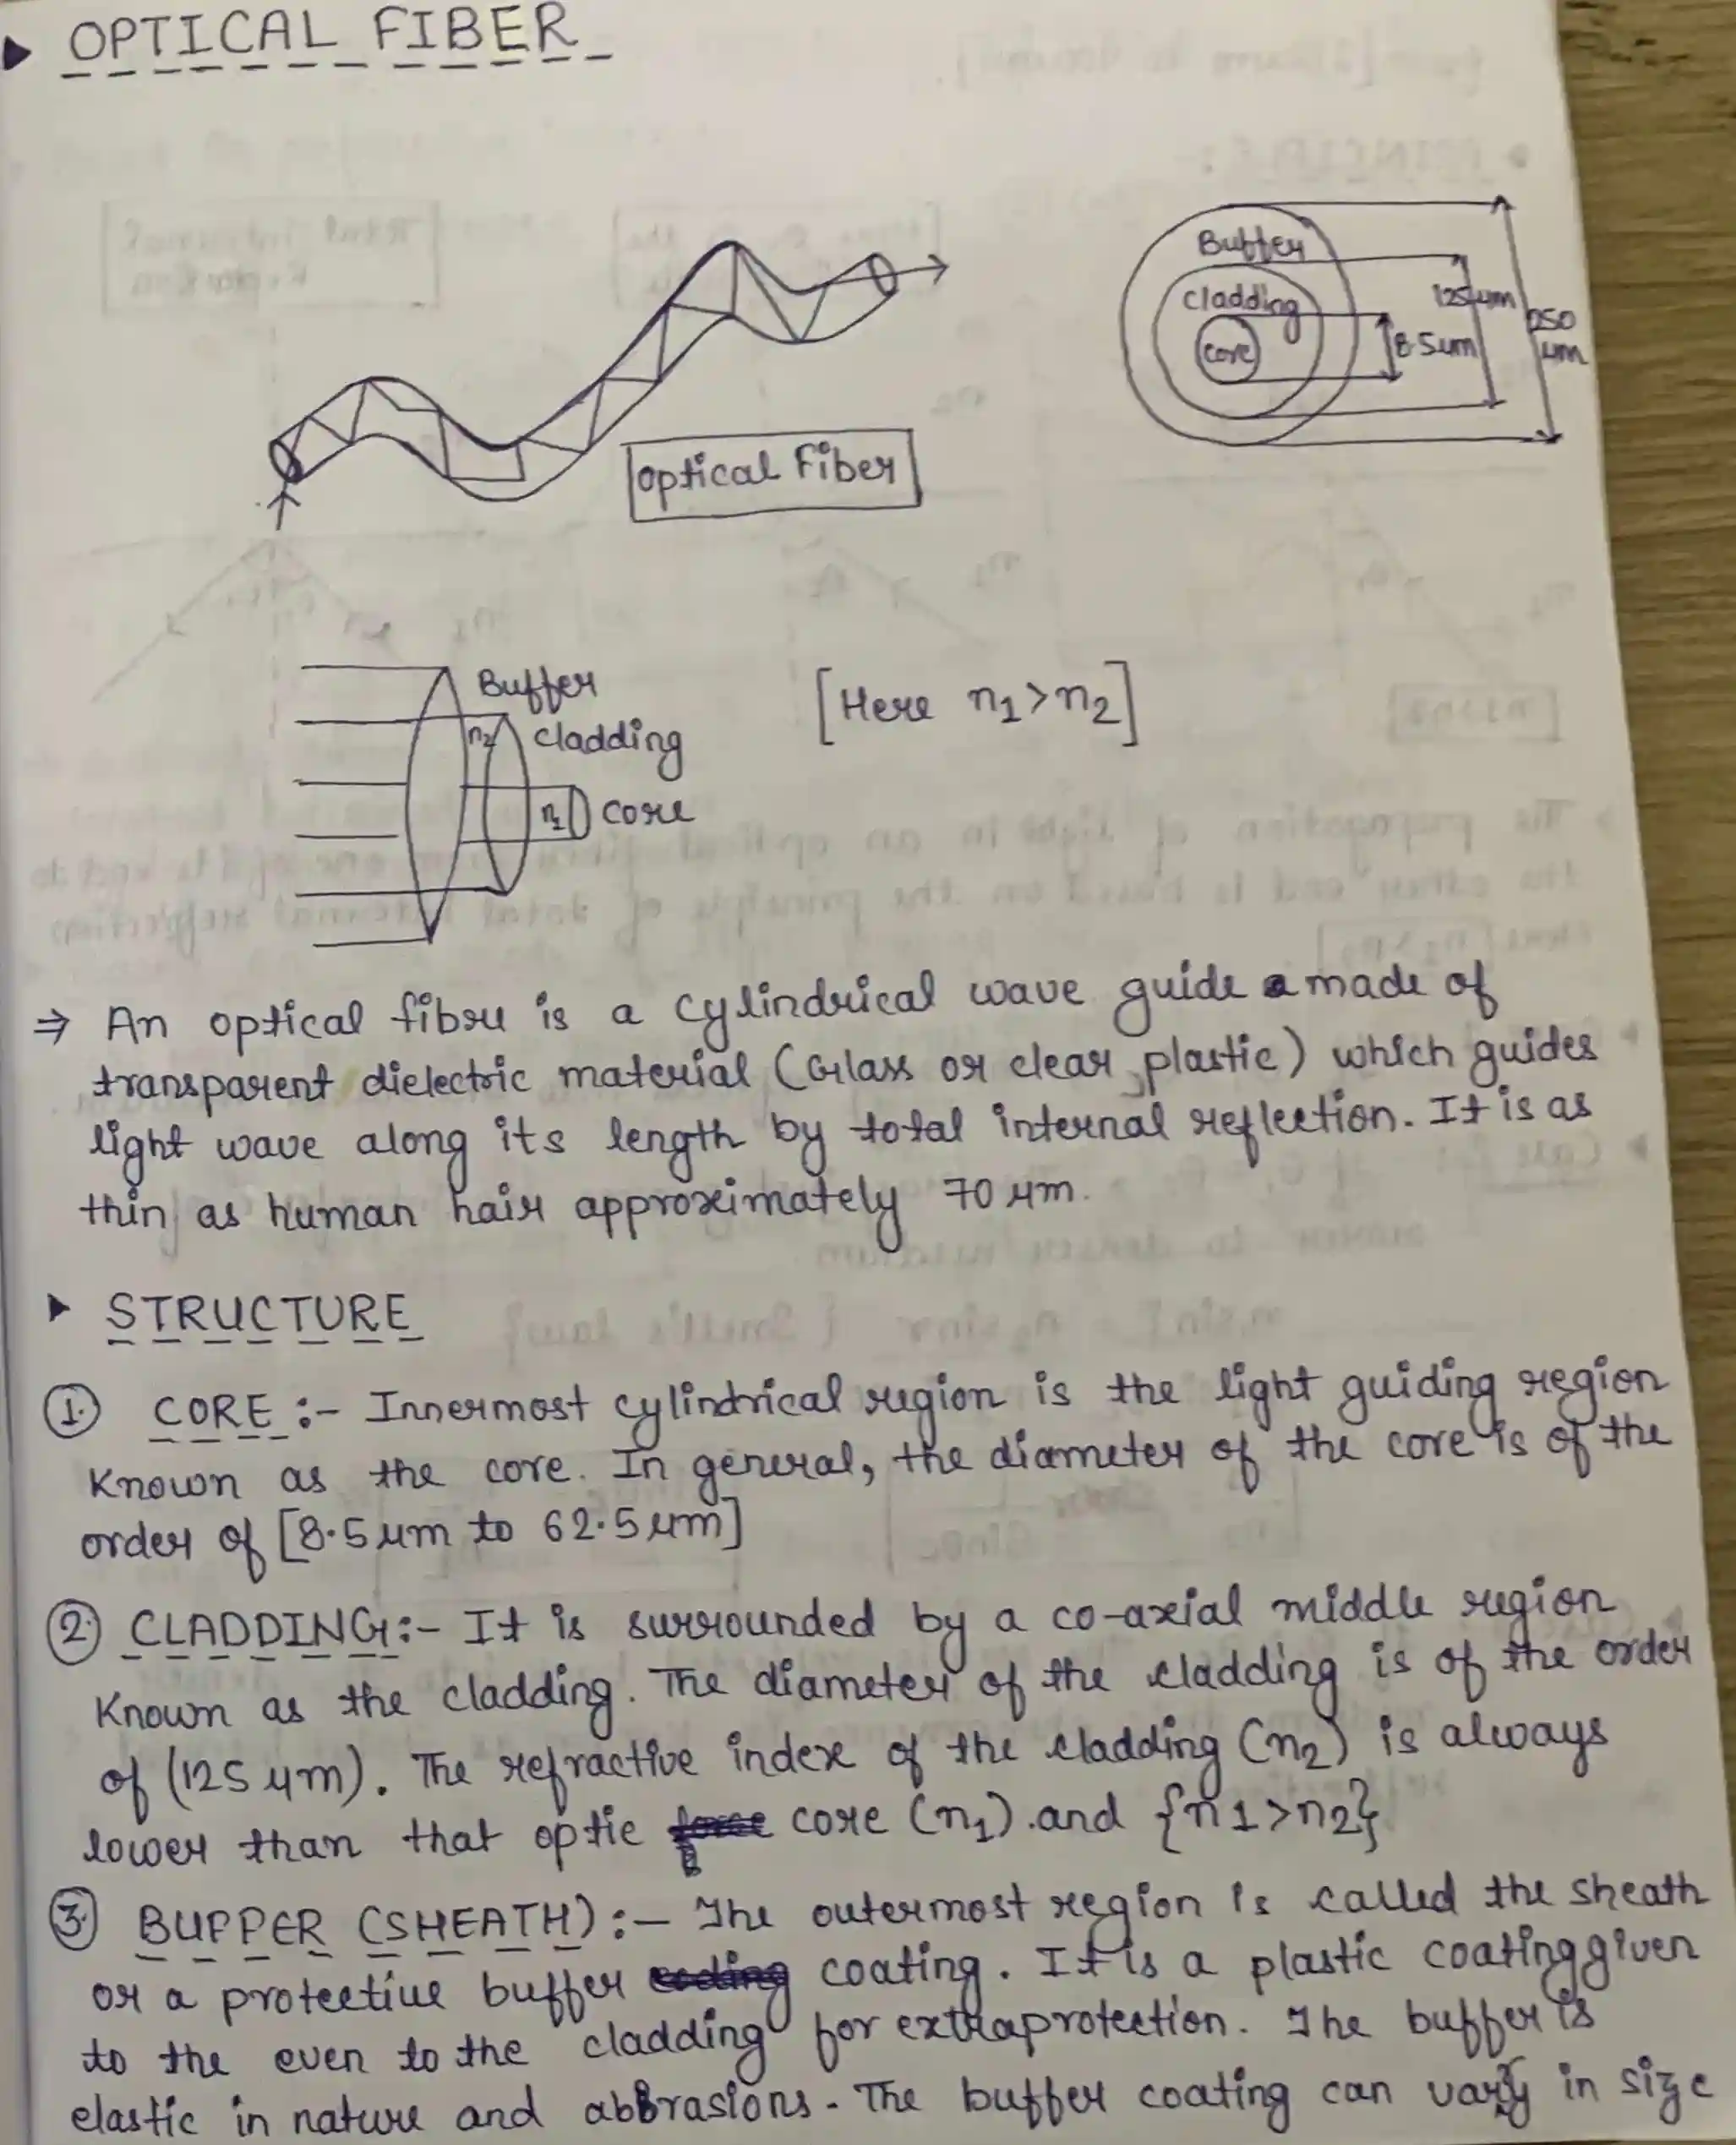 OPTICAL FIBER
Buffer
cladding
core
8.5µm
125µm
250
µm
Optical Fiber
Buffer
n2 cladding
n1 core
[Here n1>n2]
⇒ An optical fibre is a cylindrical wave guide made of
transparent dielectric material (Glass or clear plastic) which guides
light wave along its length by total internal reflection. It is as
thin as human hair approximately 70 µm.
STRUCTURE
1. CORE :- Innermost cylindrical region is the light guiding region
Known as the core. In general, the diameter of the core is of the
order of [8.5µm to 62.5µm]
2. CLADDING:- It is surrounded by a co-axial middle region
Known as the cladding. The diameter of the cladding is of the order
of (125 µm). The refractive index of the cladding (n2) is always
lower than that optic core (n1) .and {n1>n2}
3. BUFFER (SHEATH) :- The outermost region is called the sheath
or a protective buffer coating. It is a plastic coating given
to the even to the cladding for extraprotection. The buffer is
elastic in nature and abbrasions. The buffer coating can vary in size